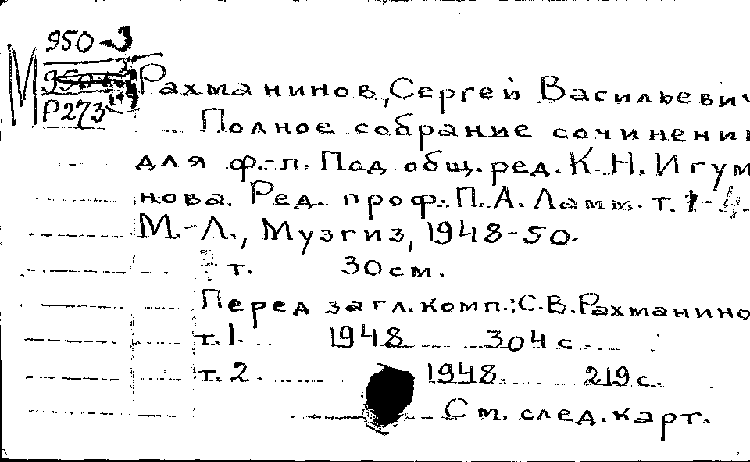 950-3
М
Р273
Рахманинов, Сергей Васильевич
Полное собрание сочинени
для ф.-п. Под общ. ред. К. Н. Игум
нова. Ред. проф. П. А. Ламм. т. 1-4.
М.-Л., Музгиз, 1948-50.
т. 30 см.
Перед загл. комп.: С. В. Рахманино
т. 1. 1948 304 с.
т. 2. 1948. 219 с.
См. след. карт.